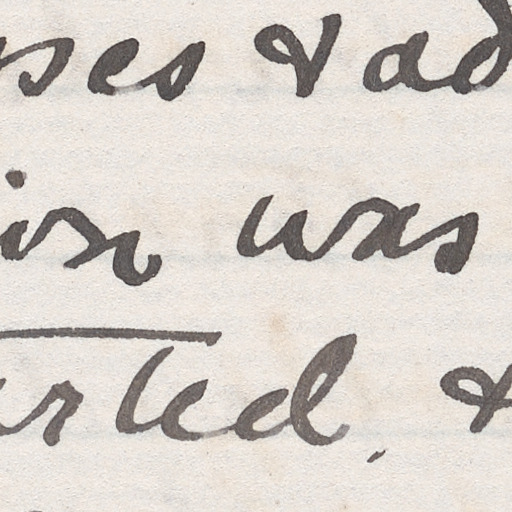 ses & ad
ion was
arted, &